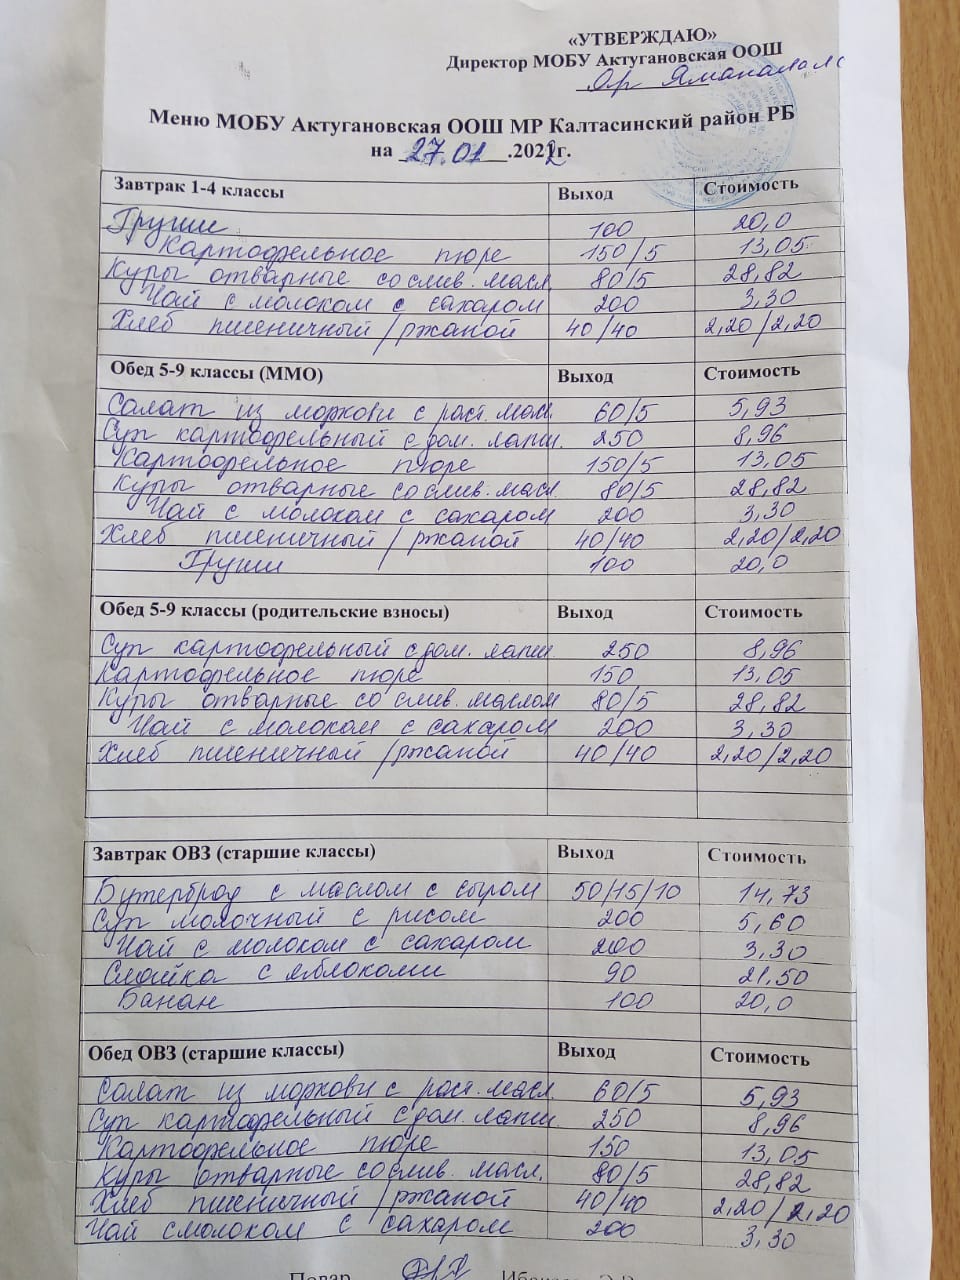 «УТВЕРЖДАЮ»
Директор МОБУ Актугановская ООШ
Меню МОБУ Актугановская ООШ МР Калтасинский район РБ
на 27.01 .2022г.
Завтрак 1-4 классы Выход Стоимость
Груши 100 20,0
Картофельное пюре 150/5 13,05
Куры отварные со слив. масл 80/5 28,82
Чай с молоком с сахаром 200 3,30
Хлеб пшеничный/ржаной 40/40 2,20/2,20
Обед 5-9 классы (ММО) Выход Стоимость
Салат из моркови с раст. масл. 60/5 5,93
Суп картофельный с дом. лапш. 250 8,96
Картофельное пюре 150/5 13,05
Куры отварные со слив. масл. 80/5 28,82
Чай с молоком с сахаром 200 3,30
Хлеб пшеничный/ржаной 40/40 2,20/2,20
Груши 100 20,0
Обед 5-9 классы (родительские взносы) Выход Стоимость
Суп картофельный с дом. лапш. 250 8,96
Картофельное пюре 150 13,05
Куры отварные со слив. маслом 80/5 28,82
Чай с молоком с сахаром 200 3,30
Хлеб пшеничный/ржаной 40/40 2,20/2,20
Завтрак ОВЗ (старшие классы) Выход Стоимость
Бутерброд с маслом с сыром 50/15/10 14,73
Суп молочный с рисом 200 5,60
Чай с молоком с сахаром 200 3,30
Слойка с яблоками 90 21,50
Банан 100 20,0
Обед ОВЗ (старшие классы) Выход Стоимость
Салат из моркови с раст. масл. 60/5 5,93
Суп картофельный с дом. лапш. 250 8,96
Картофельное пюре 150 13,05
Куры отварные со слив. масл. 80/5 28,82
Хлеб пшеничный/ржаной 40/40 2,20/2,20
Чай с молоком с сахаром 200 3,30
Повар